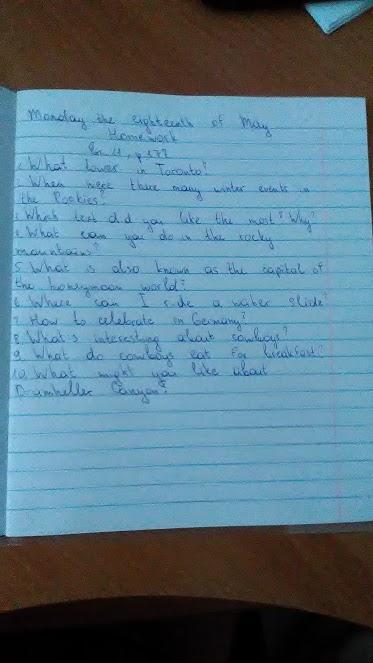 Monday the eighteenth of May
Homework
Ex. 11, p 177
1. What tower in Toronto?
2. When were there many winter events in
the Rockies?
3. Which text did you like the most? Why?
4. What can you do in the rocky
mountains?
5. What is also known as the capital of
the honeymoon world?
6. Where can I ride a water slide?
7. How to celebrate in Germany?
8. What's interesting about cowboys?
9. What do cowboys eat for breakfast?
10. What might you like about
Drumheller Canyon?